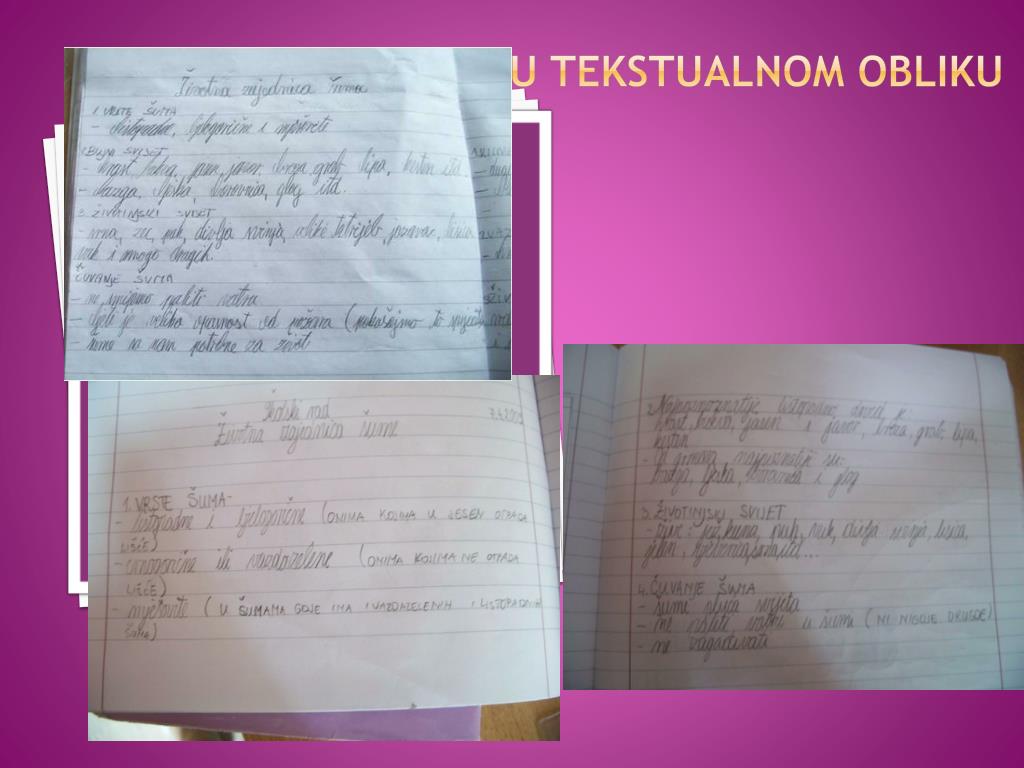 U TEKSTUALNOM OBLIKU
Životna zajednica šuma
1. VRSTE ŠUMA
- listopadne, bjelogorične i mješovite
BILJNI SVIJET
- hrast, bukva, jasen, javor, breza, grab, lipa, kesten itd.
- bazga, ljeska, borovnica, glog itd.
3. ŽIVOTINJSKI SVIJET
- srna, zec, puh, divlja svinja, veliki tetrijeb, jazavac, lisica
vuk i mnogo drugih.
ČUVANJE ŠUMA
- ne smijemo paliti vatru
- velika opasnost od požara (pokušajmo to spriječiti
- šume su nam potrebne za život
Školski rad
Životna zajednica šume
1. VRSTE ŠUMA-
- listopadne i bjelogorične (ONIMA KOJIMA U JESEN OTPADA
LIŠĆE)
- crnogorične ili vazdazelene (ONIMA KOJIMA NE OTPADA
LIŠĆE)
- mješovite (U ŠUMAMA GDJE IMA I VAZDAZELENIH I LISTOPADNIH
ŠUMA)
2. Najpoznatije listopadno drveće je:
hrast, bukva, jasen i javor, breza, grab, lipa,
kesten
- Od grmova najpoznatije su:
bazga, ljeska, borovnica i glog
3. ŽIVOTINJSKI SVIJET
- kuna, puh, vuk, divlja svinja, lisica,
jelen, vjeverica, srna, itd...
4. ČUVANJE ŠUMA
- šume pluća svijeta
- ne paliti vatru u šumi (NI NIGDJE DRUGDJE)
- ne zagađivati